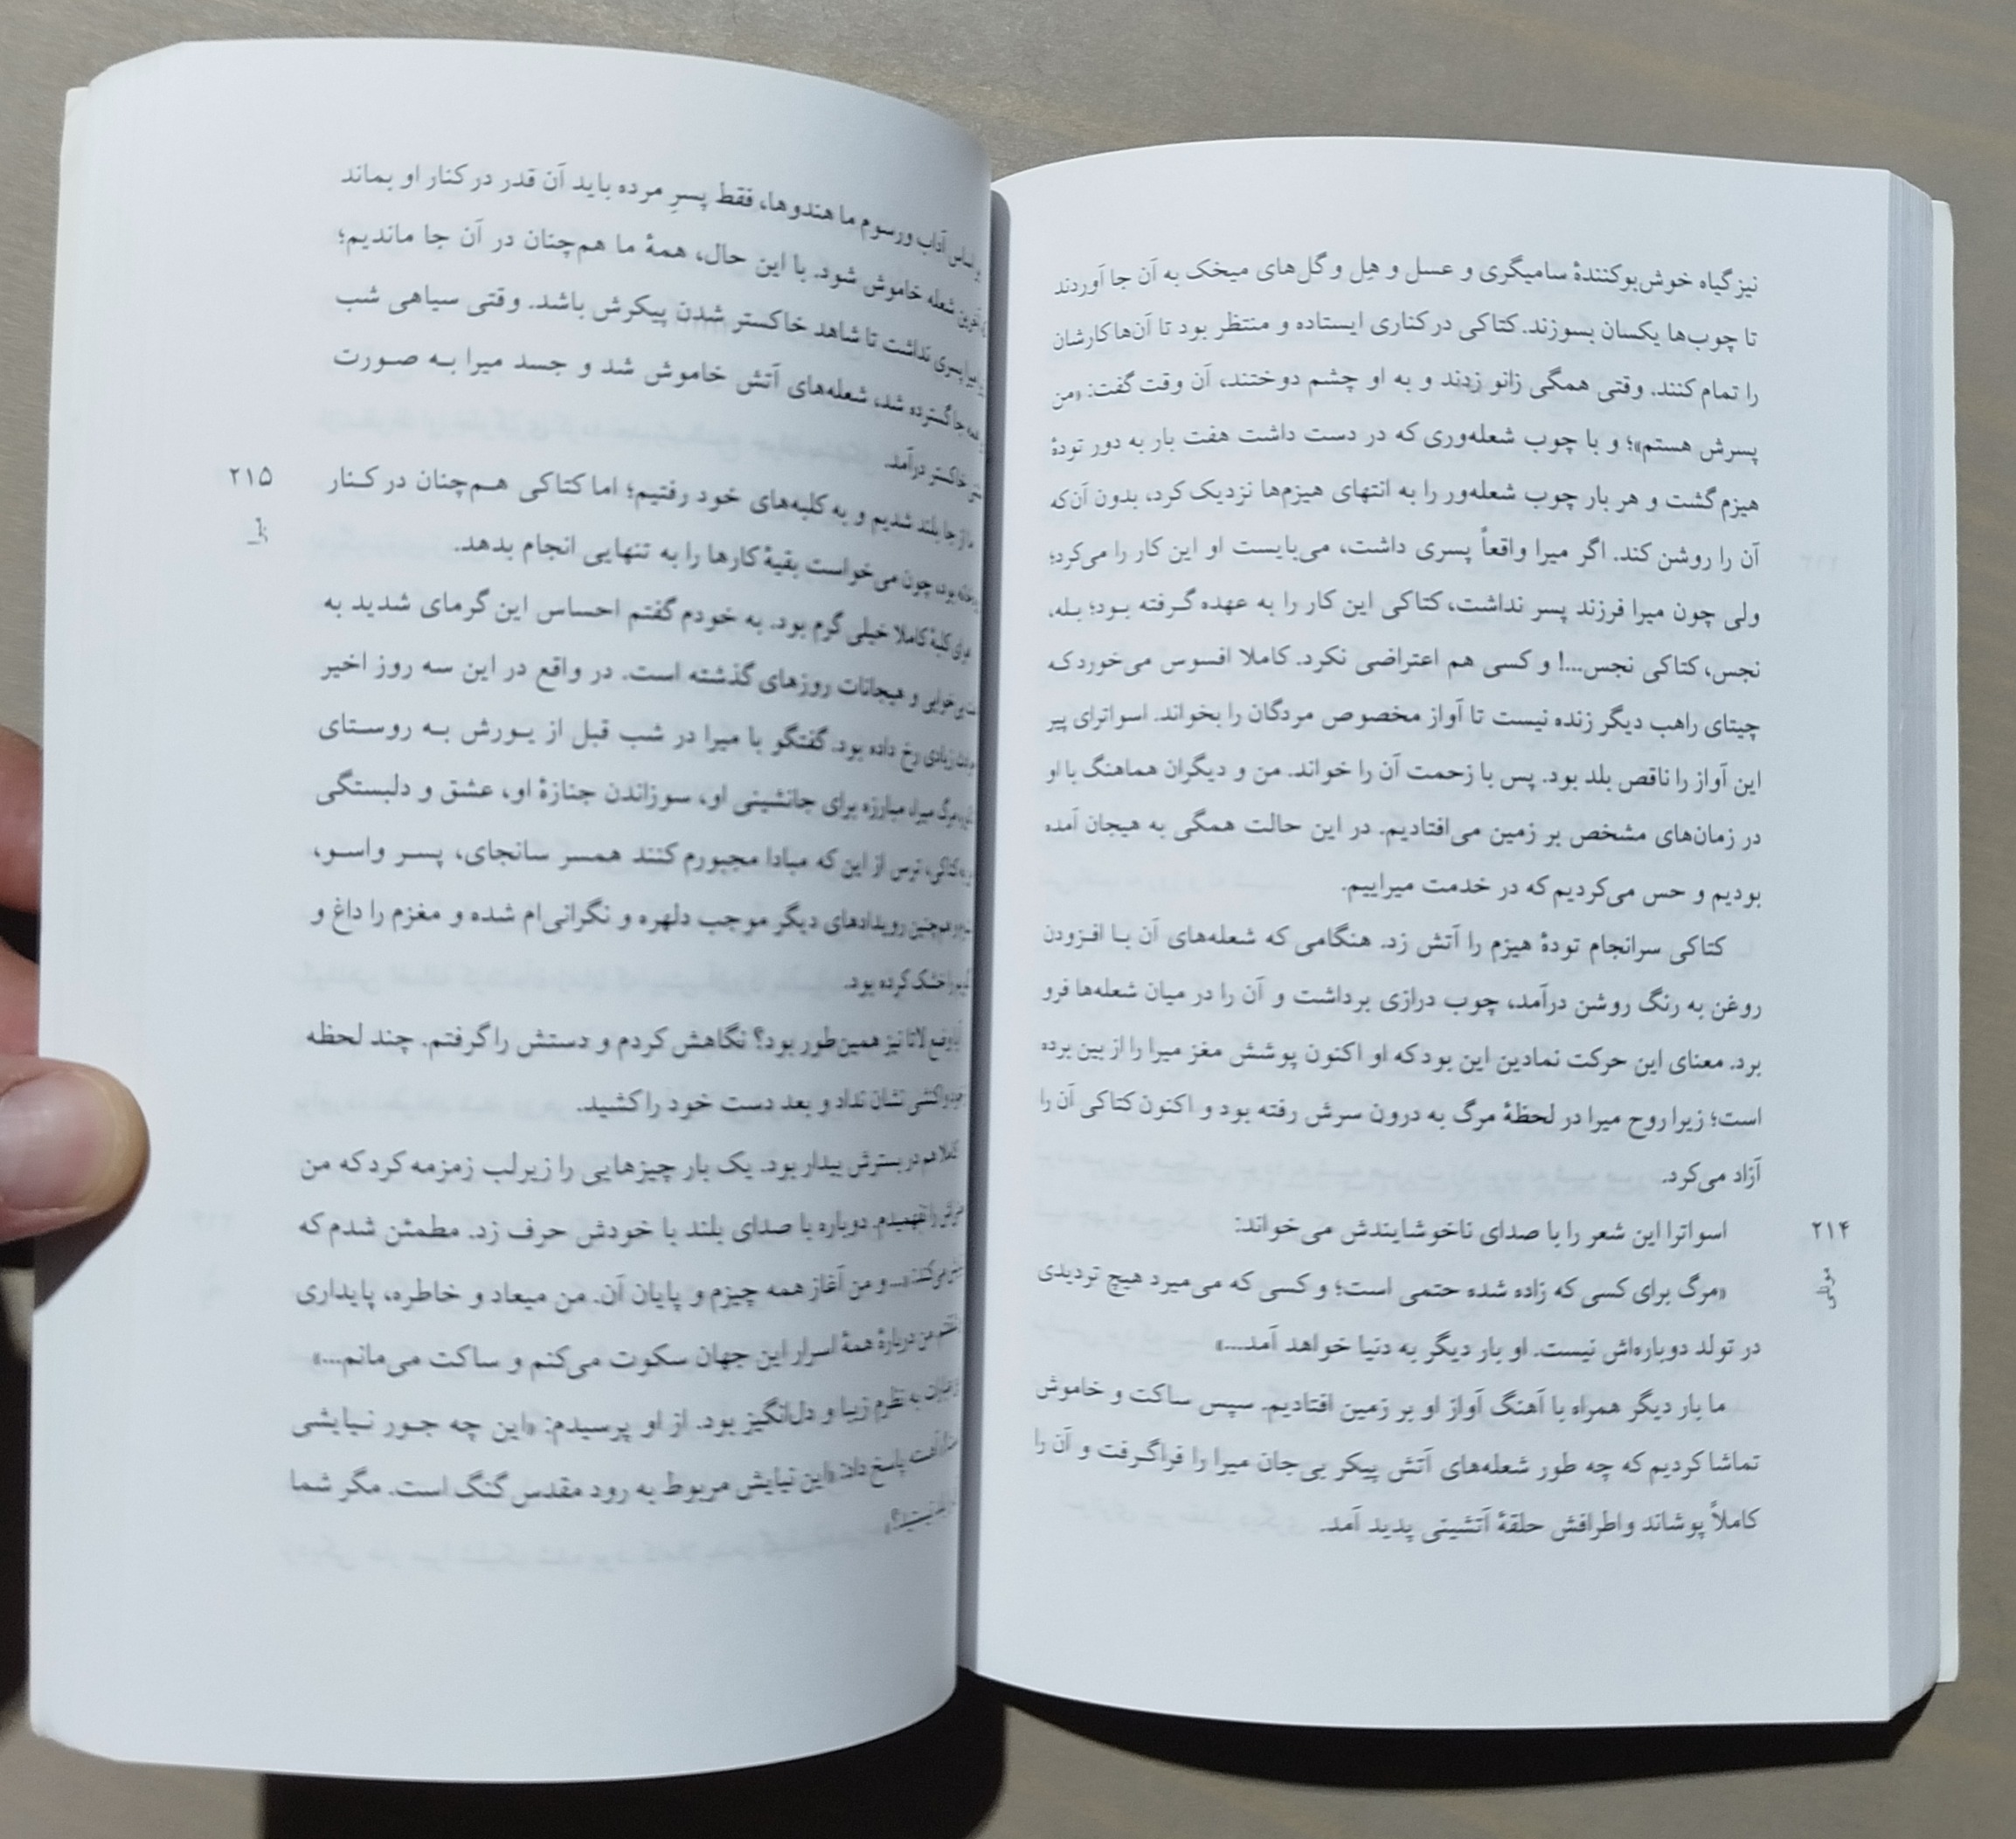 نیز گیاه خوش‌بوکنندهٔ سامیگری و عسل و هِل و گل‌های میخک به آن جا آوردند
تا چوب‌ها یکسان بسوزند. کتاکی در کناری ایستاده و منتظر بود تا آن‌ها کارشان
را تمام کنند. وقتی همگی زانو زدند و به او چشم دوختند، آن وقت گفت: «من
پسرش هستم»؛ و با چوب شعله‌وری که در دست داشت هفت بار به دور تودهٔ
هیزم گشت و هر بار چوب شعله‌ور را به انتهای هیزم‌ها نزدیک کرد، بدون آن‌که
آن را روشن کند. اگر میرا واقعاً پسری داشت، می‌بایست او این کار را می‌کرد؛
ولی چون میرا فرزند پسر نداشت، کتاکی این کار را به عهده گرفته بود؛ بله،
نجس، کتاکی نجس...! و کسی هم اعتراضی نکرد. کاملا افسوس می‌خورد که
چیتای راهب دیگر زنده نیست تا آواز مخصوص مردگان را بخواند. اسواترای پیر
این آواز را ناقص بلد بود. پس با زحمت آن را خواند. من و دیگران هماهنگ با او
در زمان‌های مشخص بر زمین می‌افتادیم. در این حالت همگی به هیجان آمده
بودیم و حس می‌کردیم که در خدمت میراییم.
کتاکی سرانجام تودهٔ هیزم را آتش زد. هنگامی که شعله‌های آن با افزودن
روغن به رنگ روشن درآمد، چوب درازی برداشت و آن را در میان شعله‌ها فرو
برد. معنای این حرکت نمادین این بود که او اکنون پوشش مغز میرا را از بین برده
است؛ زیرا روح میرا در لحظهٔ مرگ به درون سرش رفته بود و اکنون کتاکی آن را
آزاد می‌کرد.
اسواترا این شعر را با صدای ناخوشایندش می‌خواند:
«مرگ برای کسی که زاده شده حتمی است؛ و کسی که می‌میرد هیچ تردیدی
در تولد دوباره‌اش نیست. او بار دیگر به دنیا خواهد آمد...»
ما بار دیگر همراه با آهنگ آواز او بر زمین افتادیم. سپس ساکت و خاموش
تماشا کردیم که چه طور شعله‌های آتش پیکر بی‌جان میرا را فراگرفت و آن را
کاملاً پوشاند و اطرافش حلقهٔ آتشینی پدید آمد.
۲۱۴
اساس آداب ورسوم ما هندوها، فقط پسرِ مرده باید آن قدر در کنار او بماند
آخرین شعله خاموش شود. با این حال، همهٔ ما هم‌چنان در آن جا ماندیم؛
میرا پسری نداشت تا شاهد خاکستر شدن پیکرش باشد. وقتی سیاهی شب
همه جا گسترده شد، شعله‌های آتش خاموش شد و جسد میرا به صورت
خاکستر درآمد.
ما از جا بلند شدیم و به کلبه‌های خود رفتیم؛ اما کتاکی هم‌چنان در کنار
بود، چون می‌خواست بقیهٔ کارها را به تنهایی انجام بدهد.
هوای کلبهٔ کاملا خیلی گرم بود. به خودم گفتم احساس این گرمای شدید به
بی‌خوابی و هیجانات روزهای گذشته است. در واقع در این سه روز اخیر
زیادی رخ داده بود. گفتگو با میرا در شب قبل از یورش به روستای
مرگ میرا، مبارزه برای جانشینی او، سوزاندن جنازهٔ او، عشق و دلبستگی
به کتاکی، ترس از این که مبادا مجبورم کنند همسر سانجای، پسر واسو،
و هم‌چنین رویدادهای دیگر موجب دلهره و نگرانی‌ام شده و مغزم را داغ و
را خشک کرده بود.
آیا وضع لاتا نیز همین‌طور بود؟ نگاهش کردم و دستش را گرفتم. چند لحظه
واکنشی نشان نداد و بعد دست خود را کشید.
کاملا هم در بسترش بیدار بود. یک بار چیزهایی را زیرلب زمزمه کرد که من
را نفهمیدم. دوباره با صدای بلند با خودش حرف زد. مطمئن شدم که
می‌کند: «... و من آغاز همه چیزم و پایان آن. من میعاد و خاطره، پایداری
من دربارهٔ همهٔ اسرار این جهان سکوت می‌کنم و ساکت می‌مانم...»
به نظرم زیبا و دل‌انگیز بود. از او پرسیدم: «این چه جور نیایشی
آهسته پاسخ داد: «این نیایش مربوط به رود مقدس گنگ است. مگر شما
بلد نیستید؟»
۲۱۵